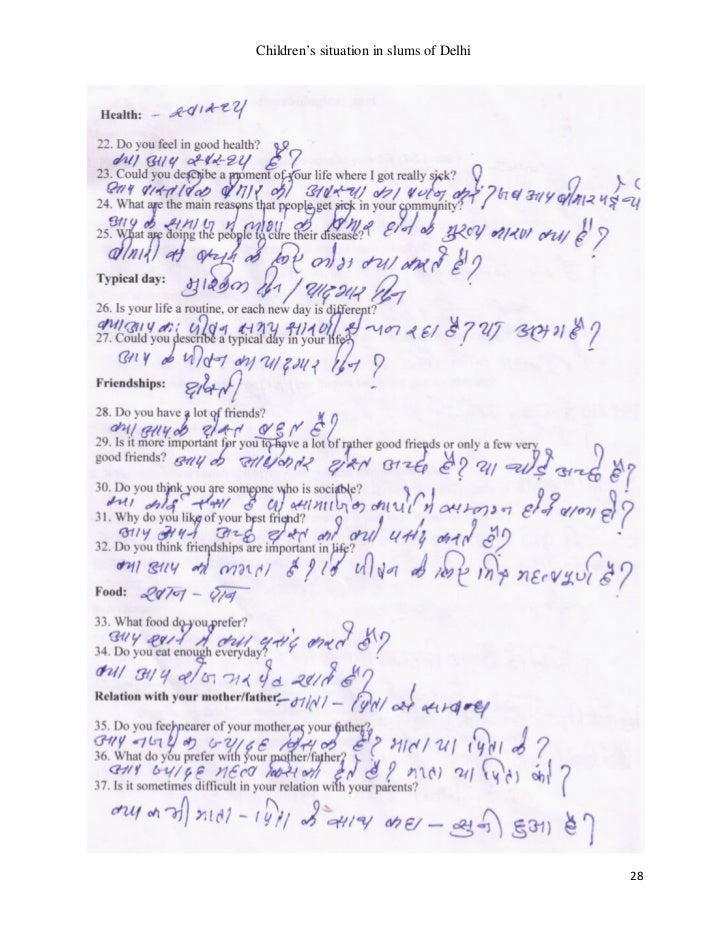 Children's situation in slums of Delhi
Health: - स्वास्थ्य
22. Do you feel in good health?
क्या आप स्वस्थ्य है?
23. Could you describe a moment of your life where I got really sick?
आप वास्तविक बीमार की अवस्था का वर्णन करें? जब आप बीमार पड़े थे
24. What are the main reasons that people get sick in your community?
आप के समाज में लोगों के बिमार होने के मुख्य कारण क्या है?
25. What are doing the people to cure their disease?
बीमारी से बचने के लिए लोग क्या करते हैं?
Typical day: मुश्किल दिन / यादगार दिन
26. Is your life a routine, or each new day is different?
क्या आप का जीवन समय सारणी से चल रहा है? या अलग है?
27. Could you describe a typical day in your life?
आप के जीवन का यादगार दिन?
Friendships: दोस्ती
28. Do you have a lot of friends?
क्या आपके दोस्त बहुत है?
29. Is it more important for you to have a lot of rather good friends or only a few very
good friends? आप के अधिकतर दोस्त अच्छे है? या थोड़े अच्छे है?
30. Do you think you are someone who is sociable?
क्या कोई ऐसा है जो सामाजिक कार्यो में सम्मलित होने वाला हो?
31. Why do you like of your best friend?
आप अपने अच्छे दोस्त को क्यों पसंद करते है?
32. Do you think friendships are important in life?
क्या आप को लगता है? कि जीवन के लिए मित्र महत्वपूर्ण है?
Food: खान - पान
33. What food do you prefer?
आप खाने में क्या पसंद करते है?
34. Do you eat enough everyday?
क्या आप रोज भर पेट खाते है?
Relation with your mother/father: - माता - पिता से सम्बन्ध
35. Do you feel nearer of your mother or your father?
आप नजदीक ज्यादह किसके है? माता या पिता के?
36. What do you prefer with your mother/father?
आप ज्यादह महत्व किसको देते है? माता या पिता को?
37. Is it sometimes difficult in your relation with your parents?
क्या कभी माता - पिता के साथ कहा - सुनी हुआ है?
28